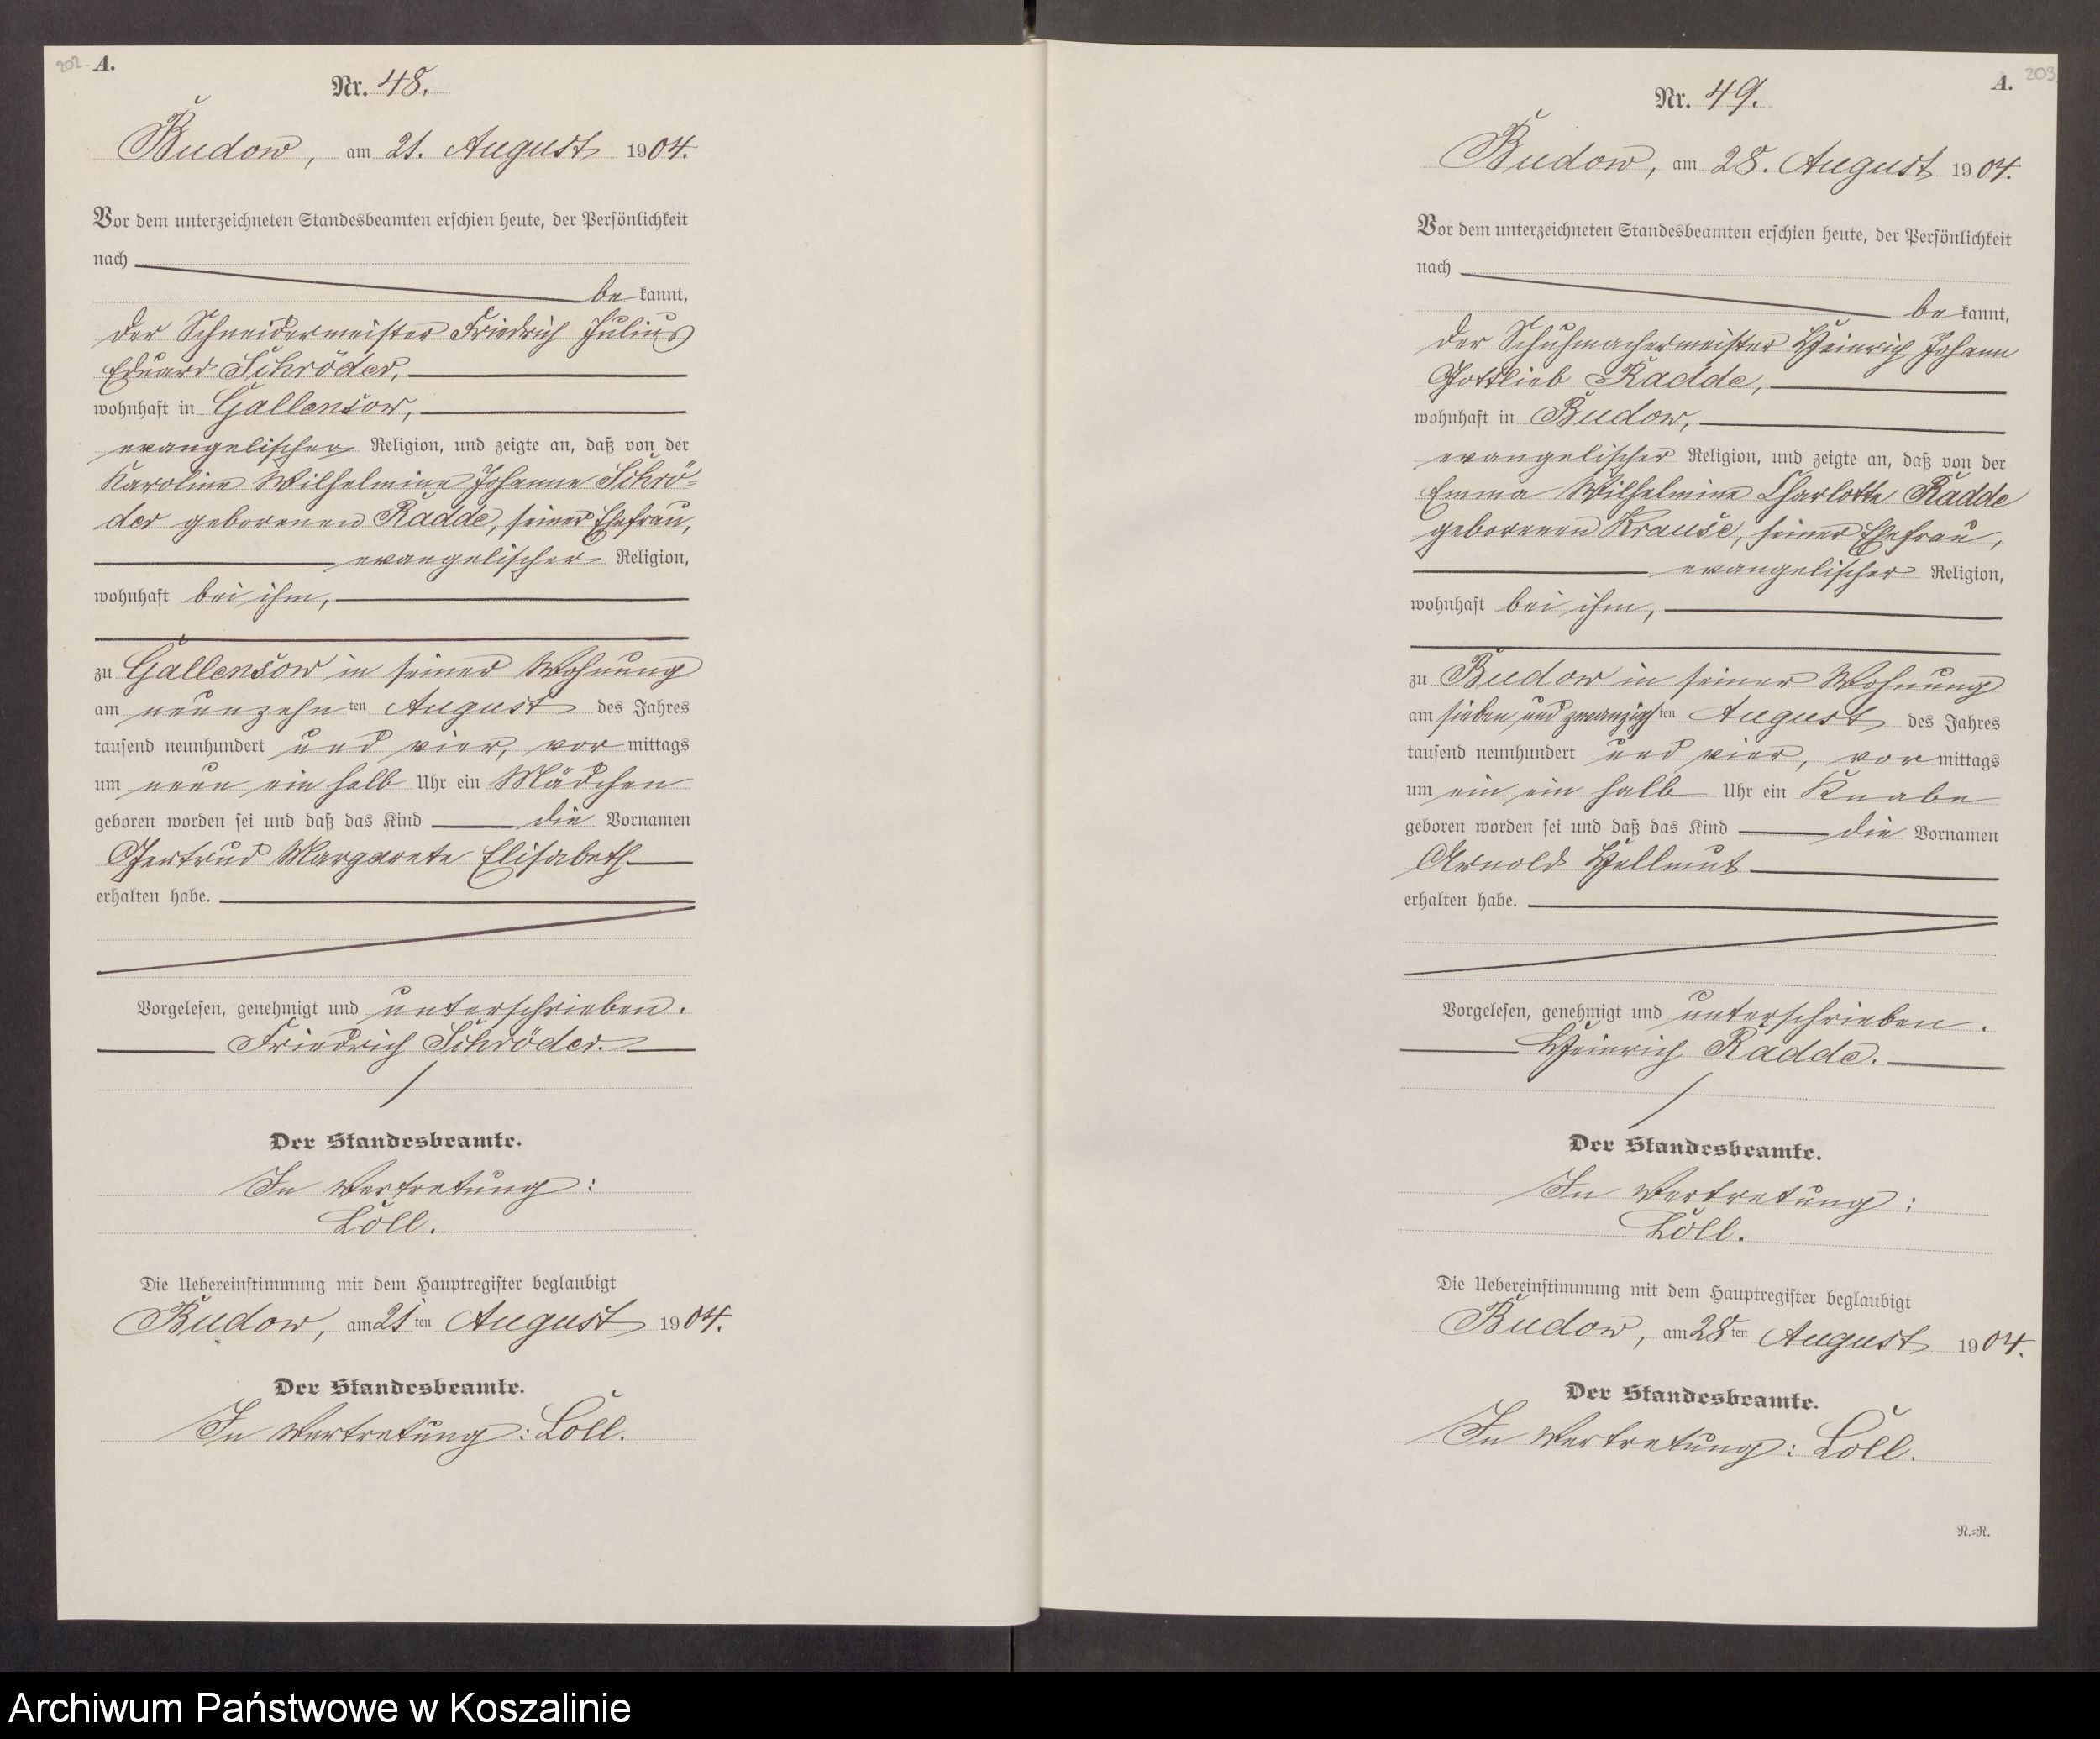 202. A.
Nr. 48.
Budow, am 21. August 1904.
Vor dem unterzeichneten Standesbeamten erschien heute, der Persönlichkeit
nach
be kannt,
der Schneidermeister Friedrich Julius
Eduard Schröder,
wohnhaft in Gallensow,
evangelischer Religion, und zeigte an, daß von der
Karoline Wilhelmine Johanne Schrö-
der geborenen Radde, seiner Ehefrau,
evangelischer Religion,
wohnhaft bei ihm,
zu Gallensow in seiner Wohnung
am neunzehn ten August des Jahres
tausend neunhundert und vier, vor mittags
um neun ein halb Uhr ein Mädchen
geboren worden sei und daß das Kind die Vornamen
Gertrud Margarete Elisabeth
erhalten habe.
Vorgelesen, genehmigt und unterschrieben.
Friedrich Schröder.
Der Standesbeamte.
In Vertretung:
Loll.
Die Uebereinstimmung mit dem Hauptregister beglaubigt
Budow, am 21 ten August 1904.
Der Standesbeamte.
In Vertretung: Loll.
A. 203
Nr. 49.
Budow, am 28. August 1904.
Vor dem unterzeichneten Standesbeamten erschien heute, der Persönlichkeit
nach
be kannt,
der Schuhmachermeister Heinrich Johann
Gottlieb Radde,
wohnhaft in Budow,
evangelischer Religion, und zeigte an, daß von der
Emma Wilhelmine Charlotte Radde
geborenen Krause, seiner Ehefrau,
evangelischer Religion,
wohnhaft bei ihm,
zu Budow in seiner Wohnung
am sieben und zwanzigsten August des Jahres
tausend neunhundert und vier, vor mittags
um ein ein halb Uhr ein Knabe
geboren worden sei und daß das Kind die Vornamen
Arnold Hellmut
erhalten habe.
Vorgelesen, genehmigt und unterschrieben.
Heinrich Radde.
Der Standesbeamte.
In Vertretung:
Loll.
Die Uebereinstimmung mit dem Hauptregister beglaubigt
Budow, am 28 ten August 1904.
Der Standesbeamte.
In Vertretung: Loll.
N.-R.
Archiwum Państwowe w Koszalinie